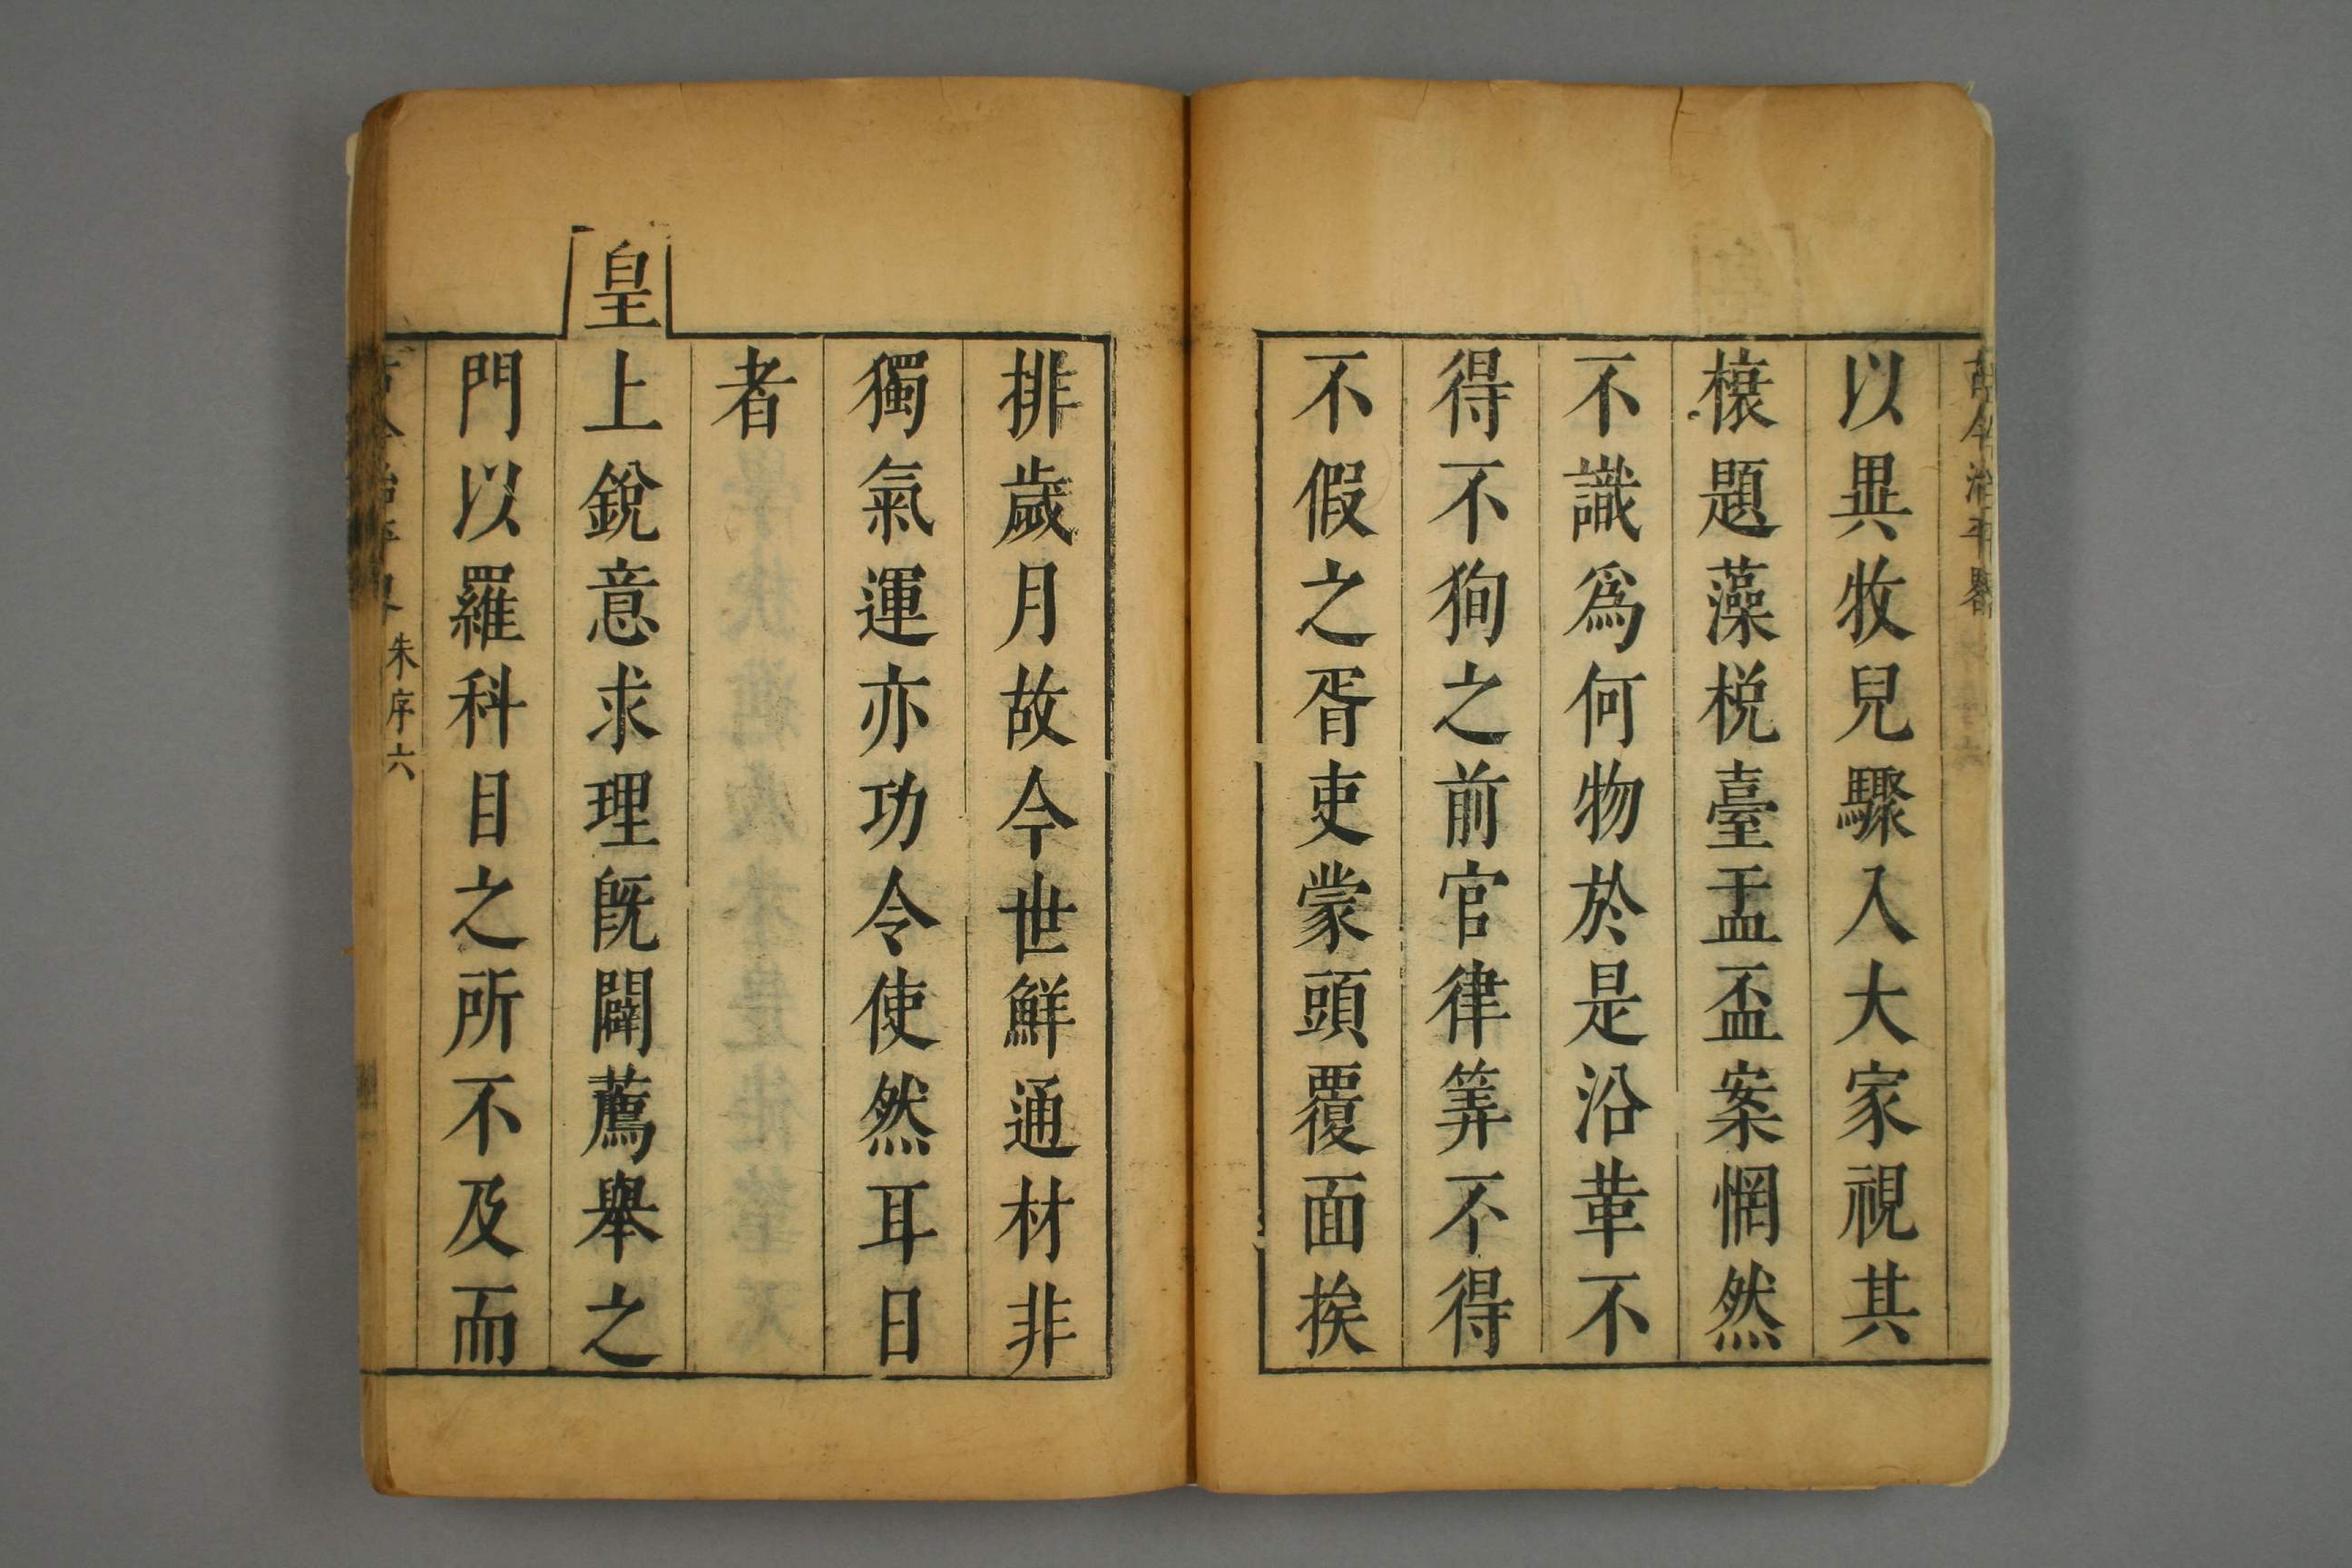 古今治平畧
以異牧兒驟入大家視其
榱題藻梲臺盂盃案惘然
不識爲何物於是沿革不
得不狥之前官律筭不得
不假之胥吏蒙頭覆面挨
排歲月故今世鮮通材非
獨氣運亦功令使然耳日
者
皇上銳意求理旣闢薦舉之
門以羅科目之所不及而
朱序六